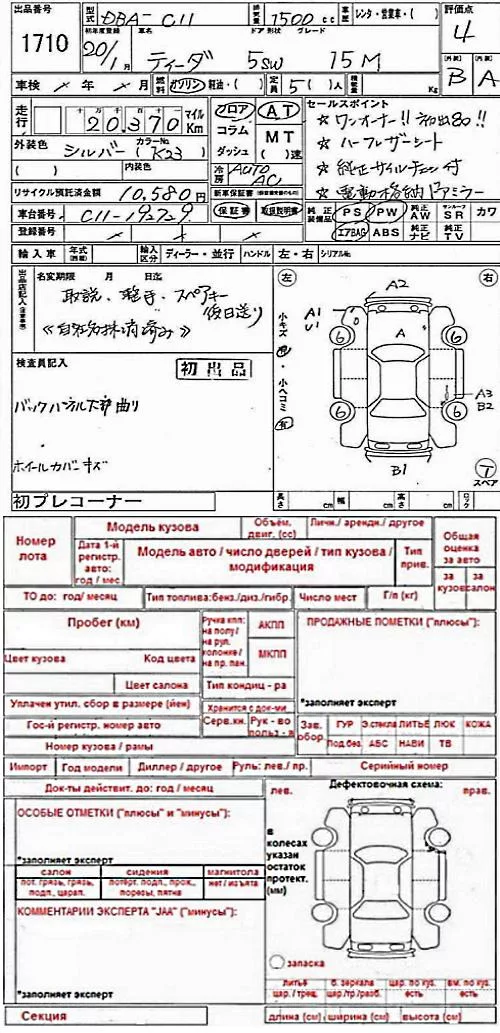 出品番号 1710
型式 DBA-C11 排気量 1500cc 車歴 レンタ・営業車・( ) 評価点 4
初年度登録 20/1 車名 ティーダ ドア 形状 5SW グレード 15M
(内装) B (外装) A
車検 年 月 燃料 ガソリン・軽油・( ) 定員 5( )人 積載量 Kg
走行 20,370 マイル Km
フロア コラム ダッシュ
AT MT ( )速
セールスポイント
☆ ワンオーナー!! 初出品!!
☆ ハーフレザーシート
☆ 純正サイレンチェン付
☆ 電動格納ドアミラー
外装色 シルバー カラーNo. (K23)
( ) 内装色
冷房 AUTO AC
リサイクル預託済金額 10,580円
新車保証書
保証書 取扱説明書
車台番号 C11-192729
登録番号
純正装備品 PS PW 純正AW サンルーフSR カワ
エアBAG ABS 純正ナビ 純正TV
輸入車 年式(西暦) 輸入区分 ディーラー・並行 ハンドル 左・右 シリアルNo.
出品店記入
名変期限 月 日迄
取説、スペアキー後日送り
検査員記入
初出品
バックパネル下部曲り
ホイールカバーキズ
初プレコーナー
左 右
小キズ 小ヘコミ
A2
A1
U1
A
6 6
6 6
A3
B2
B1
T スペア
長さ cm 幅 cm 高さ cm ロック
Номер лота
Модель кузова
Объём. двиг. (cc)
Личн./ арендн./ другое
Общая оценка за авто
Дата 1-й регистр. авто: год / мес
Модель авто / число дверей / тип кузова / модификация
Тип прив.
за кузов
за салон
ТО до: год/ месяц
Тип топлива:бенз./диз./гибр.
Число мест
Г/п (кг)
Пробег (км)
Ручка кпп: на полу / на рул. колонке / на пр. пан.
АКПП
МКПП
ПРОДАЖНЫЕ ПОМЕТКИ ("плюсы"):
Цвет кузова Код цвета
Цвет салона
Тип кондиц - ра
*заполняет эксперт
Уплачен утил. сбор в размере (йен)
Хранится с док-ми
Гос-й регистр. номер авто
Серв.кн. Рук - во польз - я
Зав. обор. ГУР Э.стекла ЛИТЬЁ ЛЮК КОЖА
Под.без. АБС НАВИ ТВ
Номер кузова / рамы
Импорт Год модели Диллер / другое Руль: лев./ пр. Серийный номер
Док-ты действит. до: год / месяц
лев. Дефектовочная схема: прав.
ОСОБЫЕ ОТМЕТКИ ("плюсы" и "минусы"):
*заполняет эксперт
в колесах указан остаток протект. (мм)
салон сидения магнитола
пот. грязь, подп., царап. потёрт. подп., прож., порезы, пятна нет / изъята
КОММЕНТАРИИ ЭКСПЕРТА "JAA" ("минусы"):
запаска
литьё б. зеркала цар. по куз. вм. по куз.
цар. / трещ. цар./тр./разб. есть есть
*заполняет эксперт
Секция
длина (см) ширина (см) высота (см)